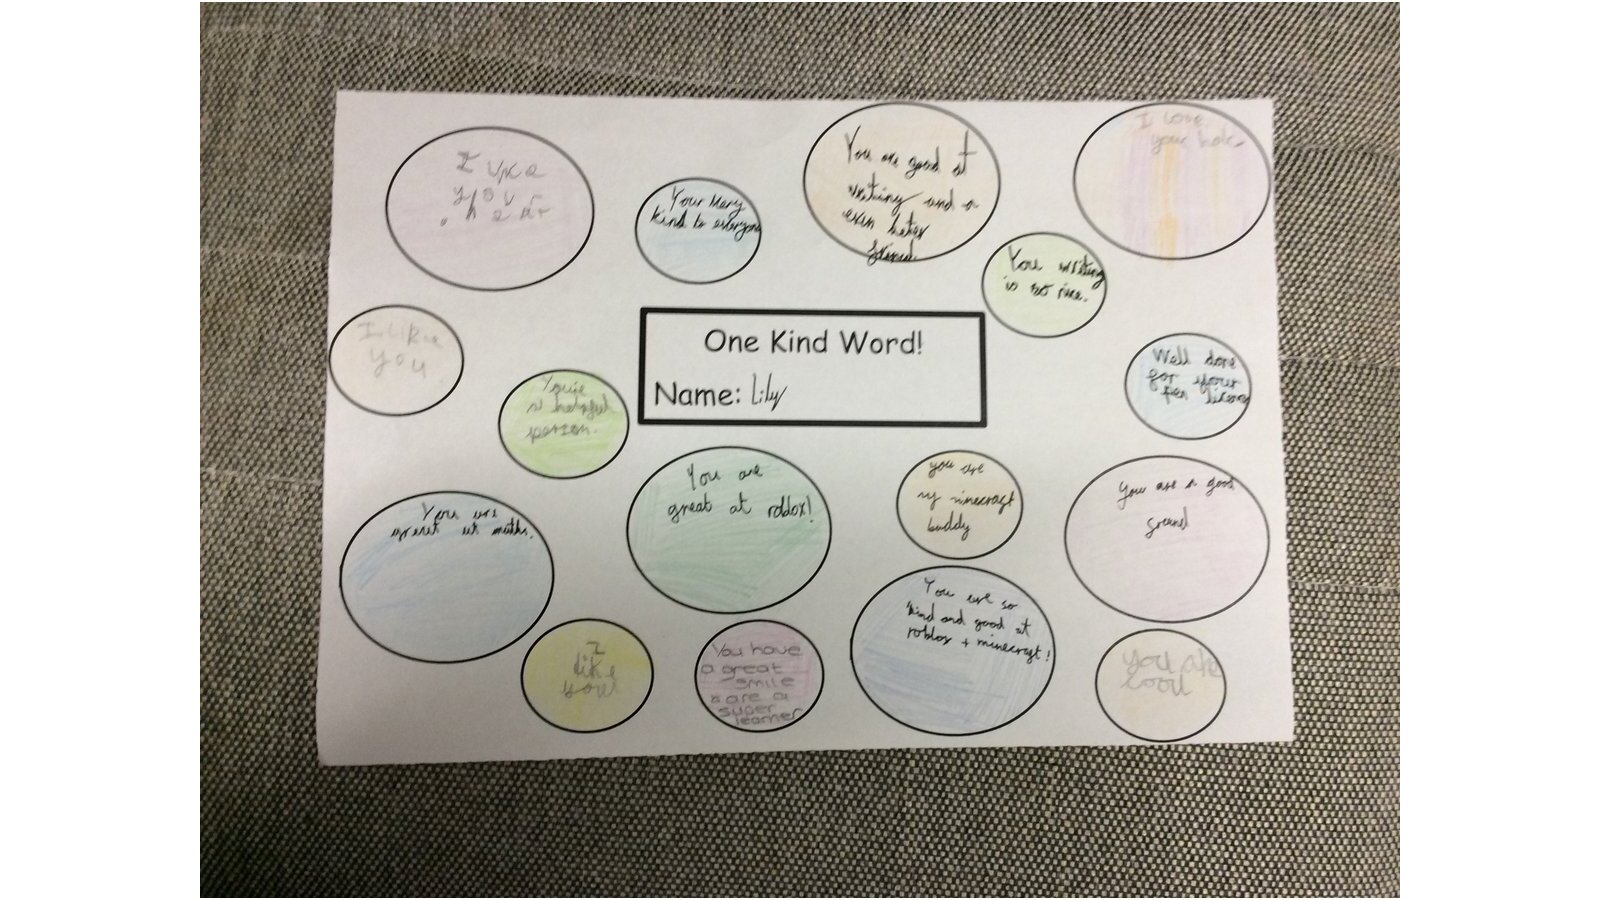 I like
your
hair
Your very
kind to everyone
You are good at
writing and a
even beter
friend.
I love
your
You writing
is so nice.
I Like
you
One Kind Word!
Name: Lily
Well done
for your
Pen licence
You're
a helpful
person.
You are
great at roblox!
you are
my minecraft
buddy
you are a good
friend
You are
great at maths.
I
like
you!
You have
a great
smile
& are a
super
learner
You are so
kind and good at
roblox + minecraft!
you are
cool